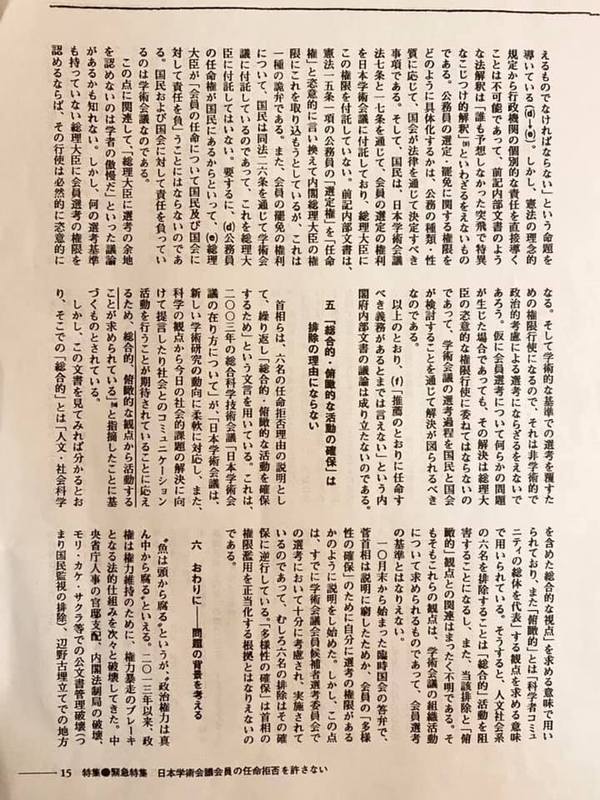 えるものでなければならない」という命題を
導いている(d→e)。しかし、憲法の理念的
規定から行政機関の個別的な責任を直接導く
ことは不可能であって、前記内部文書のよう
な法解釈は「誰も予想しなかった突飛で特異
なこじつけ的解釈」といわざるをえないもの
である。公務員の選定・罷免に関する権限を
どのように具体化するかは、公務の種類・性
質に応じて、国会が法律を通じて決定すべき
事項である。そして、国民は、日本学術会議
法七条と一七条を通じて、会員の選定の権利
を日本学術会議に付託しており、総理大臣に
この権限を付託していない。前記内部文書は、
憲法一五条一項の公務員の「選定権」を「任命
権」と恣意的に言い換えて内閣総理大臣の権
限にこれを取り込もうとしているが、これは
一種の詭弁である。また、会員の罷免の権利
について、国民は同法二六条を通じて学術会
議に付託しているのであって、これを総理大
臣に付託してはいない。要するに、(d)公務員
の任命権が国民にあるからといって、(e)総理
大臣が「会員の任命について国民及び国会に
対して責任を負」うことにはならないのであ
る。国民および国会に対して責任を負ってい
るのは学術会議なのである。
この点に関連して、「総理大臣に選考の余地
を認めないのは学者の傲慢だ」といった議論
があるかも知れない。しかし、何の選考基準
も持っていない総理大臣に会員選考の権限を
認めるならば、その行使は必然的に恣意的に
なる。そして学術的な基準での選考を覆すた
めの権限行使になるので、それは非学術的で
政治的考慮による選考にならざるをえないで
あろう。仮に会員選考について何らかの問題
が生じた場合であっても、その解決は総理大
臣の恣意的な権限行使に委ねてはならないの
であって、学術会議の選考過程を国民と国会
が検討することを通じて解決が図られるべき
なのである。
以上のとおり、(f)「推薦のとおりに任命す
べき義務があるとまでは言えない」という内
閣府内部文書の議論は成り立たないのである。
五 「総合的・俯瞰的な活動の確保」は
排除の理由にならない
首相らは、六名の任命拒否理由の説明とし
て、繰り返し「総合的・俯瞰的な活動を確保
するため」という文言を用いている。これは、
二〇〇三年の総合科学技術会議「日本学術会
議の在り方について」が、「日本学術会議は、
新しい学術研究の動向に柔軟に対応し、また、
科学の観点から今日の社会的課題の解決に向
けて提言したり社会とのコミュニケーション
活動を行うことが期待されていることに応え
るため、総合的、俯瞰的な観点から活動する
ことが求められている」と指摘したことに基
づくものとされている。
しかし、この文書を見てみれば分かるとお
り、そこでの「総合的」とは「人文・社会科学
を含めた総合的な視点」を求める意味で用い
られており、また「俯瞰的」とは「科学者コミュ
ニティの総体を代表」する観点を求める意味
で用いられている。そうすると、人文社会系
の六名を排除することは「総合的」活動を阻
害することになるし、また、当該排除と「俯
瞰的」観点との関連はまったく不明である。そ
もそもこれらの観点は、学術会議の組織活動
について求められるものであって、会員選考
の基準とはなりえない。
一〇月末から始まった臨時国会の答弁で、
菅首相は説明に窮したためか、会員の「多様
性の確保」のために自分に選考の権限がある
かのように説明をし始めた。しかし、この点
は、すでに学術会議会員候補者選考委員会で
の選考において十分に考慮され、実施されて
いるのであって、むしろ六名の排除はその確
保に逆行している。「多様性の確保」は首相の
権限濫用を正当化する根拠とはなりえないの
である。
六 おわりに――問題の背景を考える
“魚は頭から腐る”というが、“政治権力は真
ん中から腐る”といえる。二〇一三年以来、政
権は権力維持のために、権力暴走のブレーキ
となる法的仕組みを次々と破壊してきた。中
央省庁人事の官邸支配、内閣法制局の破壊、
モリ・カケ・サクラ等での公文書管理破壊(つ
まり国民監視の排除)、辺野古埋立てでの地方
15 特集●緊急特集 日本学術会議会員の任命拒否を許さない